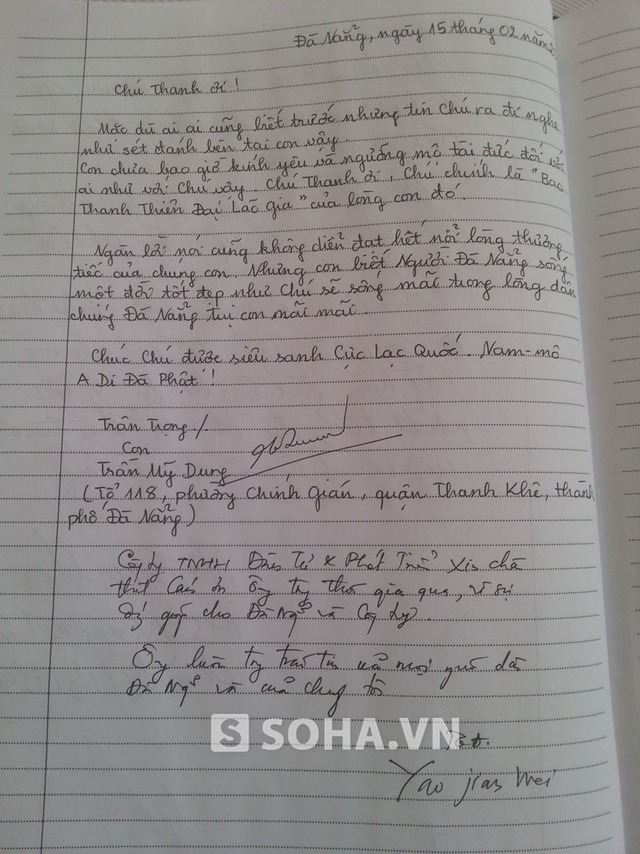 Đà Nẵng, ngày 15 tháng 02 năm
Chú Thanh ơi !
Mặc dù ai ai cũng biết trước nhưng tin Chú ra đi nghe
như sét đánh bên tai con vậy.
Con chưa bao giờ kính yêu và ngưỡng mộ tài đức đối với
ai như với Chú vậy. Chú Thanh ơi, Chú chính là "Bao
Thanh Thiên Đại Lão Gia" của lòng con đó.
Ngàn lời nói cũng không diễn đạt hết nỗi lòng thương
tiếc của chúng con. Nhưng con biết Người Đà Nẵng sống
một đời tốt đẹp như Chú sẽ sống mãi trong lòng dân
chúng Đà Nẵng tụi con mãi mãi.
Chúc Chú được siêu sanh Cực Lạc Quốc. Nam-mô
A Di Đà Phật !
Trân Trọng /
Con
Trần Mỹ Dung
(Tổ 118, phường Chính Gián, quận Thanh Khê, thành
phố Đà Nẵng)
Cty TNHH Đầu Tư & Phát Triển Xin
cám ơn Ông thời gian qua, vì sự
cho Đà Nẵng và
Ông luôn
Đà Nẵng và của chúng tôi
SOHA.VN
Yao jian Wei